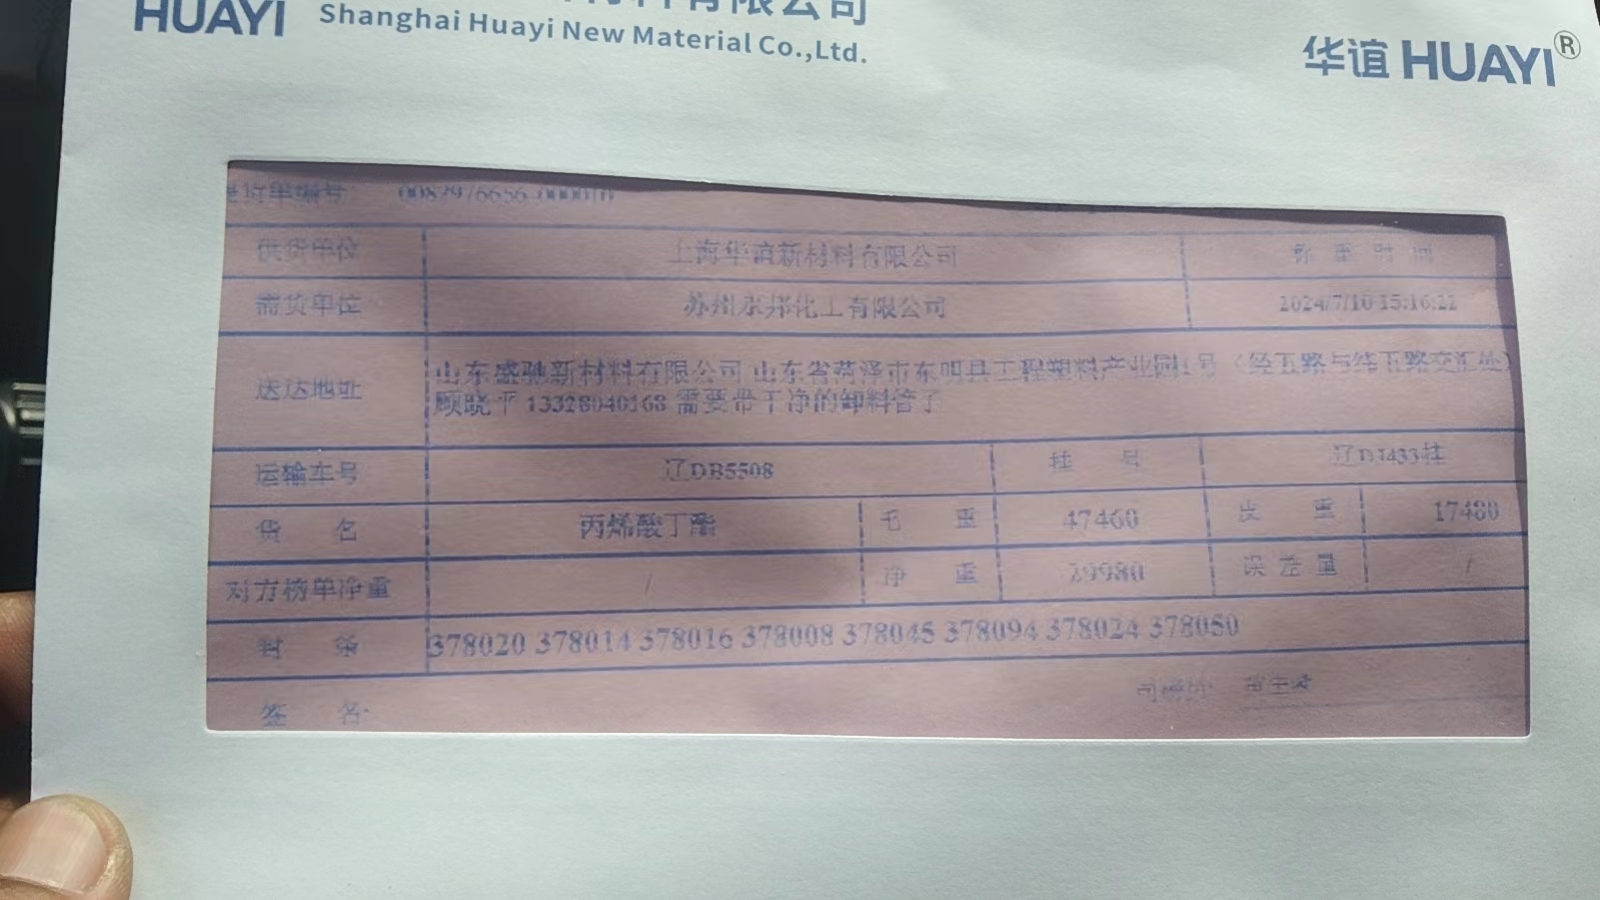 HUAYI
有限公司
Shanghai Huayi New Material Co.,Ltd.
华谊 HUAYI®
货单编号
供货单位 上海华谊新材料有限公司 称重时间
需货单位 苏州东邦化工有限公司 2024/7/10 15:16:22
送达地址 山东盛驰新材料有限公司 山东省菏泽市东明县工程塑料产业园1号（经五路与纬五路交汇处）
顾晓平 13328040168 需要带干净的卸料管子
运输车号 辽DB5508 挂号 辽DJ433挂
货名 丙烯酸丁酯 毛重 47460 皮重 17480
对方榜单净重 / 净重 29980 误差量 /
封条 378020 378014 378016 378008 378045 378094 378024 378050
司磅员:
签名: